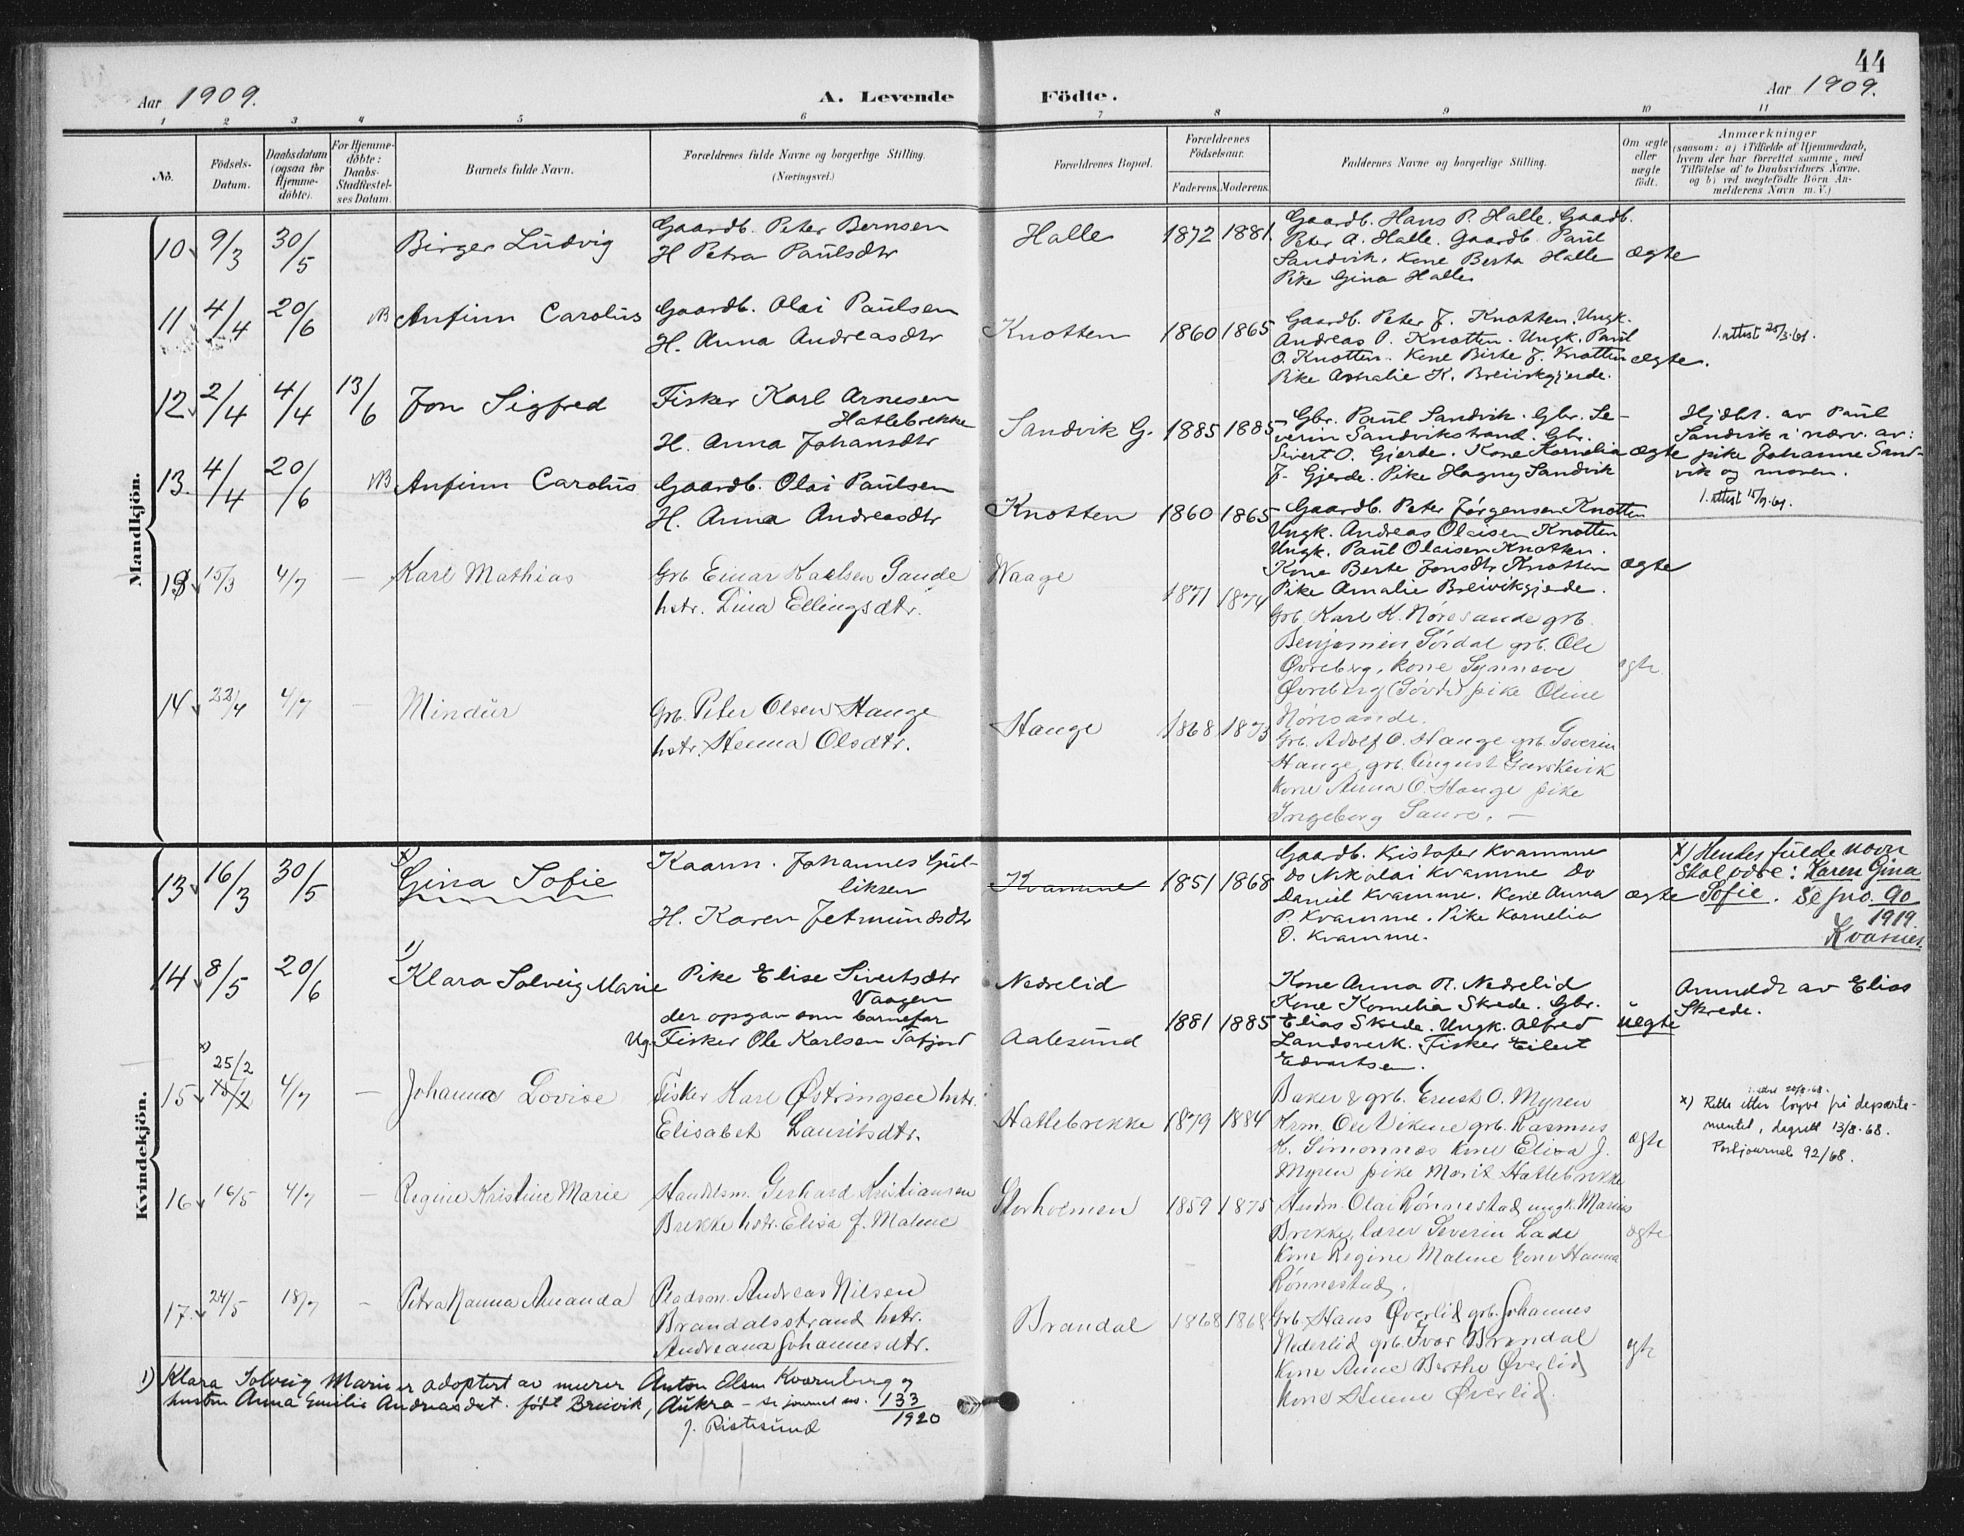 44
Aar 1909. A. Levende Födte. Aar 1909.
1 2 3 4 5 6 7 8 9 10 11
No.
Födsels-Datum.
Daabsdatum (ogsaa for Hjemme-döbte).
For Hjemme-döbte: Daabs-Stadfæstel-ses Datum.
Barnets fulde Navn.
Forældrenes fulde Navne og borgerlige Stilling.
(Næringsvei.)
Forældrenes Bopæl.
Forældrenes Födselsaar.
Faderens. Moderens.
Faddernes Navne og borgerlige Stilling.
Om ægte eller uægte födt.
Anmærkninger
(saasom: a) i Tilfælde af Hjemmedaab,
hvem der har forrettet samme, med
Tilföielse af to Daabsvidners Navne,
og b) ved uægtefödte Börn An-
melderens Navn m. V.)
Mandkjön.
10 9/3 30/5 Birger Ludvig
Gaardb. Peter Bernsen
H Petra Paulsdtr
Halle 1872 1881
Gaardb. Hans P. Halle. Gaardb.
Peter A. Halle. Gaardb. Paul
Sandvik. Kone Berta Halle
Pike Gina Halle
ægte
11 4/4 20/6 NB Anfinn Carolus
Gaardb. Olai Paulsen
H. Anna Andreasdtr
Knotten 1860 1865
Gaardb. Peter J. Knotten. Ungk.
Andreas O. Knotten. Ungk. Paul
O. Knotten. Kone Birte J. Knotten
Pike Amalie K. Breivikgjerde.
ægte.
12 2/4 4/4 13/6 Jon Sigfred
Fisker Karl Arnesen
Hatlebrekke
H. Anna Johansdtr
Sandvik G. 1885 1885
Gbr. Paul Sandvik. Gbr. Se-
verin Sandvikstrand. Gbr.
Sivert O. Gjerde. Kone Kornelia
J. Gjerde. Pike Hagny Sandvik
ægte
Hjdbt. av Paul
Sandvik i nærv. av:
pike Johanne Sand-
vik og moren.
13. 4/4 20/6 NB Anfinn Carolus
Gaardb. Olai Paulsen
H. Anna Andreasdtr
Knotten 1860 1865
Gaardb. Peter Jørgensen Knotten
Ungk. Andreas Olaisen Knotten
Ungk. Paul Olaisen Knotten.
Kone Berte Jonsdtr Knotten
Pike Amalie Breivikgjerde.
ægte
13 15/3 4/7 — Karl Mathias
Grb Einar Karlsen Sande
hstr. Lina Ellingsdtr.
Waage 1871 1874
Grb. Karl K. Nøresande grb.
Benjamin Sørdal grb. Ole
Øvreberg, kone Synnøve
Øvreberg (Gørde) pike Oline
Nøresande.
ægte
14 22/4 4/7 — Mindur
Grb. Peter Olsen Hauge
hstr. Hanna Olsdtr.
Hauge 1868 1873
Grb. Adolf O. Hauge grb. Severin
Hauge, grb. August Gurskevik
kone Anna O. Hauge pike
Ingeborg Saure. —
Kvindekjön.
13 16/3 30/5 x) Gina Sofie
Kaarm. Johannes Gul-
liksen
H. Karen Jetmundsdtr
Kvamme 1851 1868
Gaardb. Kristofer Kvamme
do Nikolai Kvamme Do
Daniel Kvamme. Kone Anna
P. Kvamme. Pike Kornelia
O. Kvamme.
ægte
x) Hendes fulde navn
skal være: Karen Gina
Sofie. Se jno. 90
1919.
14 8/5 20/6 1) Klara Solveig Marie
Pike Elise Sivertsdtr
Vaagen
der opgav som barnefar
Ug. Fisker Ole Karlsen Tafjord
Nedrelid
Aalesund 1881 1885
Kone Anna R. Nedrelid
Kone Kornelia Skrede. Gbr.
Elias Skrede. Ungk. Alfred
Landsverk. Fisker Eilert
Edvartsen.
uægte
Anmeldt av Elias
Skrede.
x) 25/2
15 15/2 4/7 — Johanna Lovise
Fisker Karl Østringsen hstr.
Elisabet Lauritsdtr.
Hatlebrekke 1879 1884
Baker & grb. Ernst O. Myren
Krm. Ole Vikene grb. Rasmus
K. Simonnes kone Elisa J.
Myren pike Marit Hatlebrekke
ægte
x) Rettet etter løyve frå departe-
mentet, dagsett 13/8-68.
Postjournal 92/68.
16 16/5 4/7 — Regine Kristine Marie
Handelsm. Gerhard Kristiansen
Brekke hstr. Elisa J. Malene
Storholmen 1859 1875
Hndm. Olai Rønnestad ungk. Marius
Brekke, lærer Severin Lade
kone Regine Malene kone Hanna
Rønnestad.
ægte
17. 24/5 18/7 — Petra Nanna Amanda
Pladsm. Andreas Nilsen
Brandalsstrand hstr.
Andreana Johannesdtr.
Brandal 1868 1868
Grb. Hans Øverlid grb. Johannes
Nederlid grb. Ivar Brandal
kone Anne Berthe Øverlid
kone Helene Øverlid.
ægte
1) Klara Solveig Marie er adoptert av murer Anton Olsen Kvarnberg og
hustru Anna Emilie Andreasdat. født Breivik, Aukra — se journal no. 133/1920
J. Ristesund